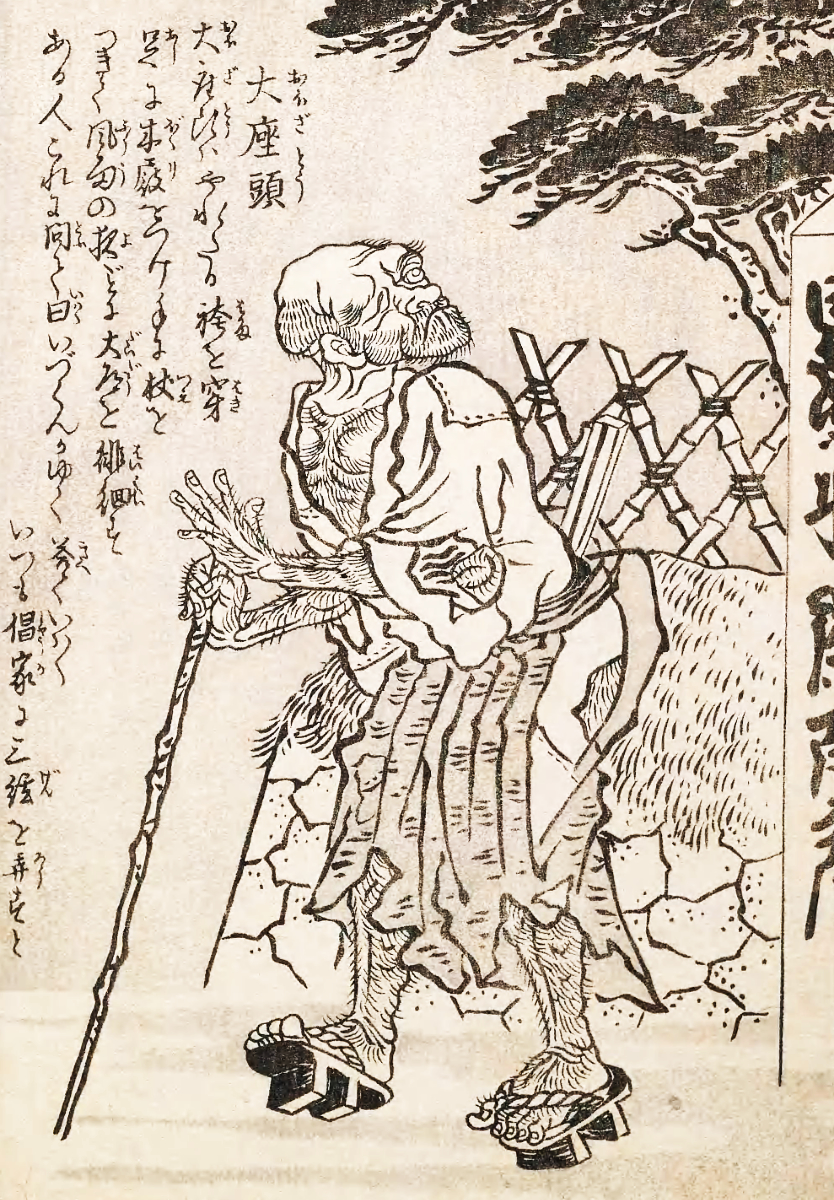 大座頭
大座頭はやれたる袴を穿
足に木履をつけ手に杖を
つきて風雨の夜ごとに大道を徘徊す
ある人これに問て曰いづくんかゆく答ていはく
いつも倡家に三絃を弄すと